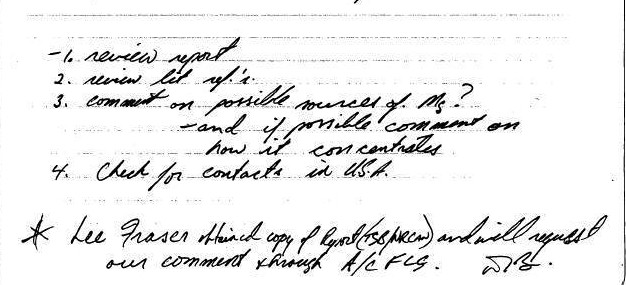 -1. review report
2. review lit ref.'s.
3. comment on possible sources of Mg?
-and if possible comment on
how it concentrates
4. Check for contacts in U.S.A.
* Lee Fraser obtained copy of Report (TSB/NRCan) and will request
our comment through A/C FLG.